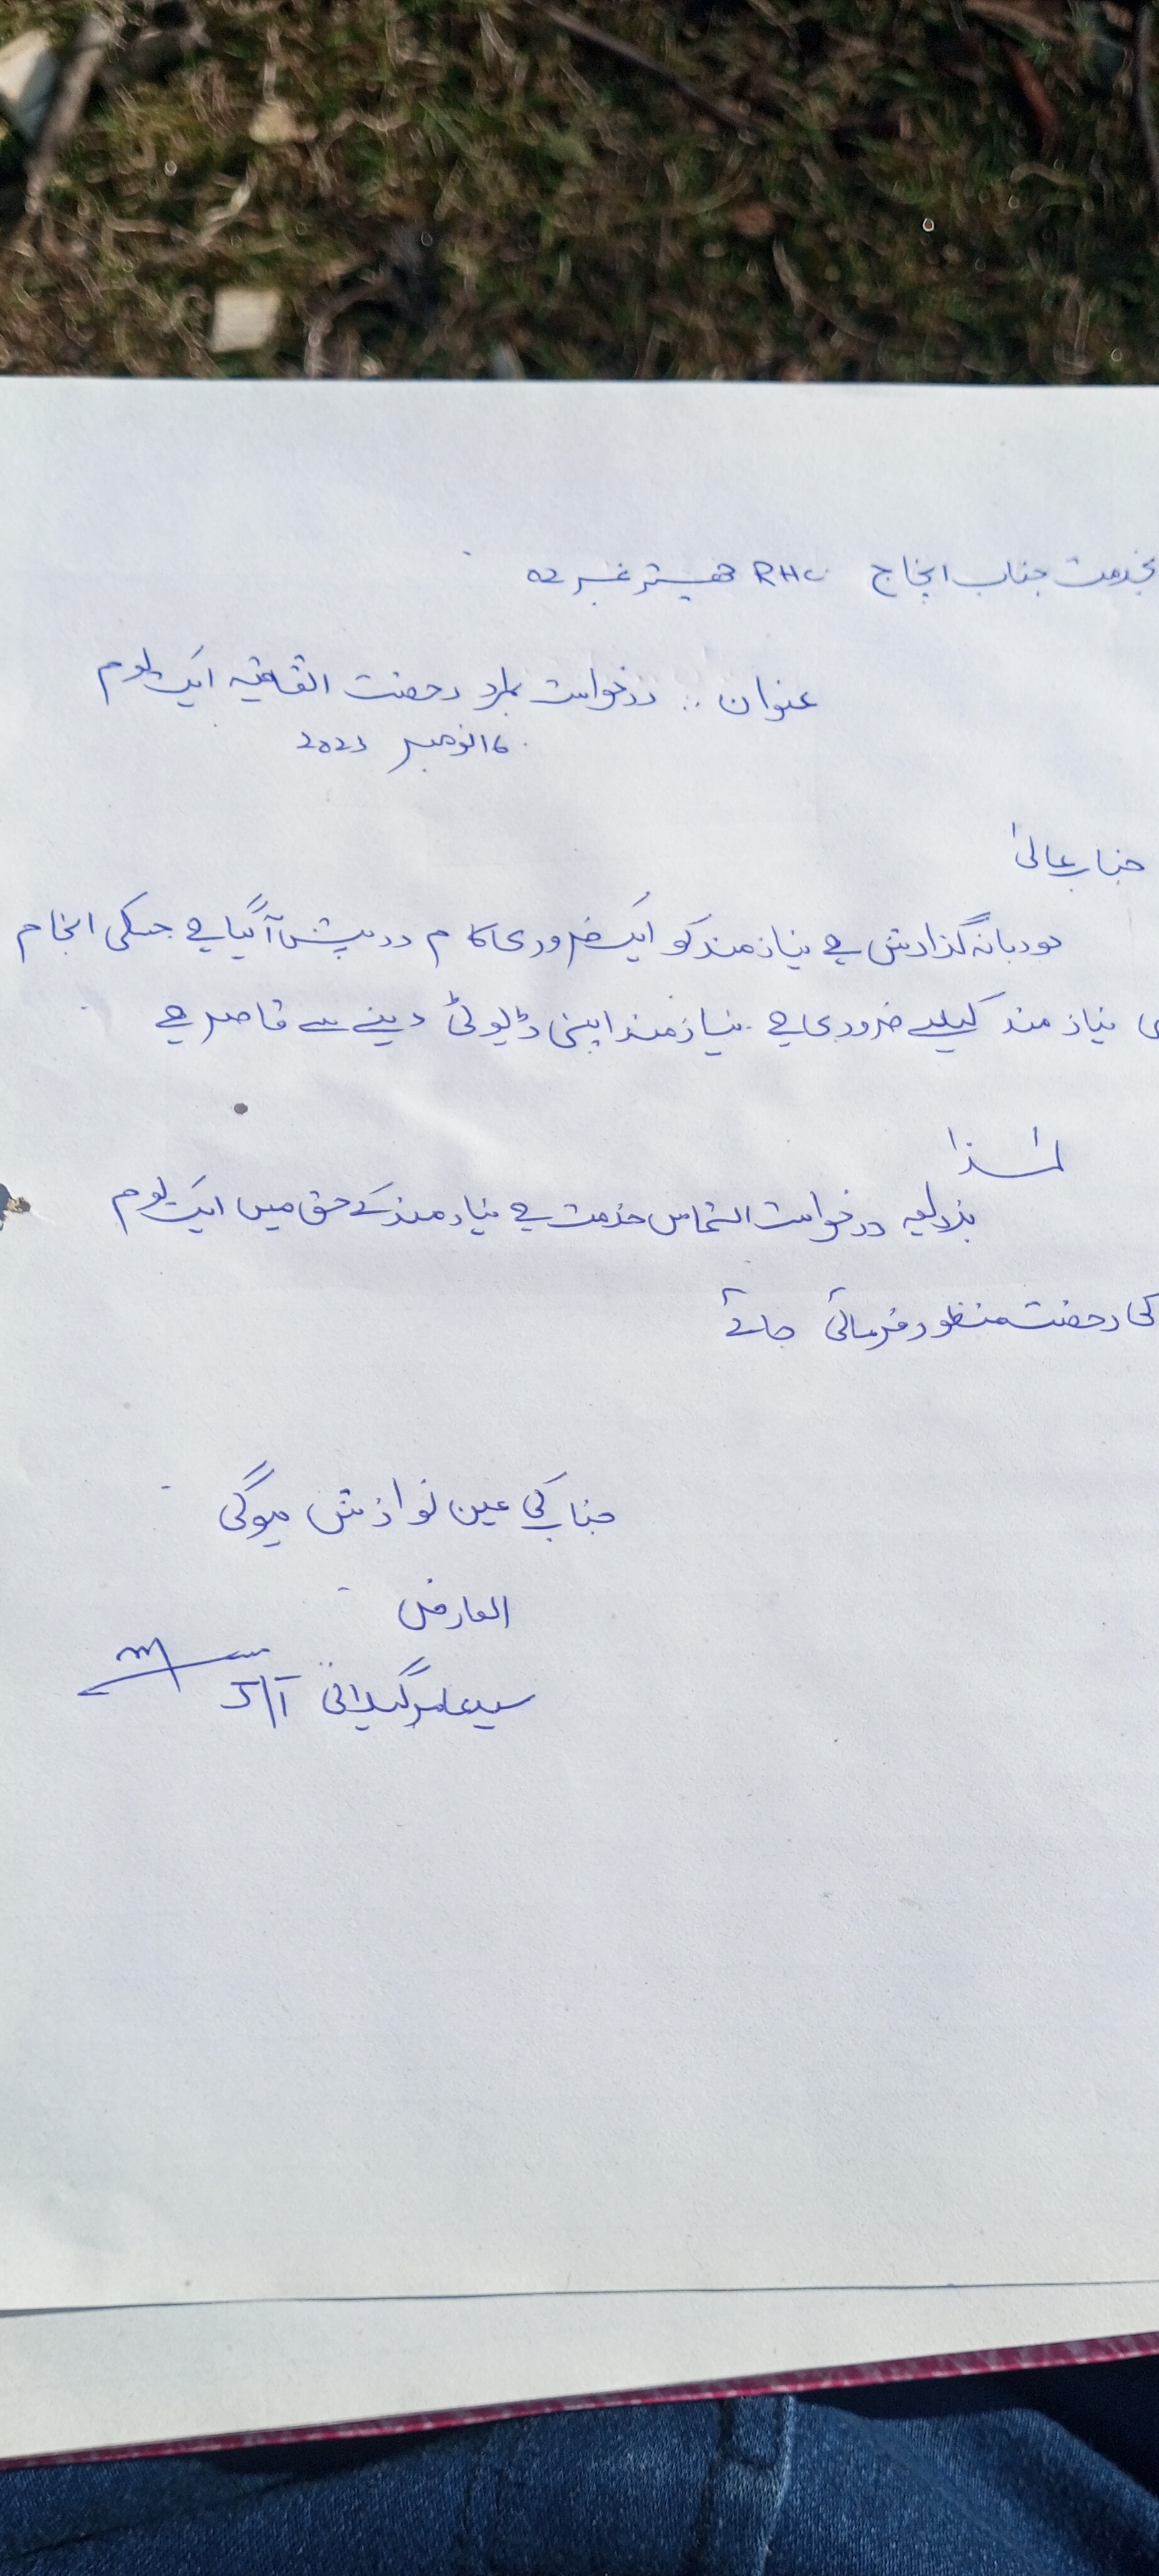 بخدمت جناب انچارج RHC ھیسٹر نمبر 02
عنوان :. درخواست بمراد رخصت اتفاقیہ ایک یوم
16 نومبر 2023
جناب عالیٰ
مودبانہ گذارش ہے نیاز مند کو ایک ضروری کام درپیش آ گیا ہے جسکی انجام
نیاز مند کیلیے ضروری ہے . نیاز مند اپنی ڈیوٹی دینے سے قاصر ہے
لہٰذا
بذریعہ درخواست التماس خدمت ہے نیاز مند کے حق میں ایک یوم
کی رخصت منظور فرمائی جائے
جناب کی عین نوازش ہوگی
العارض
سید عامر گیلانی